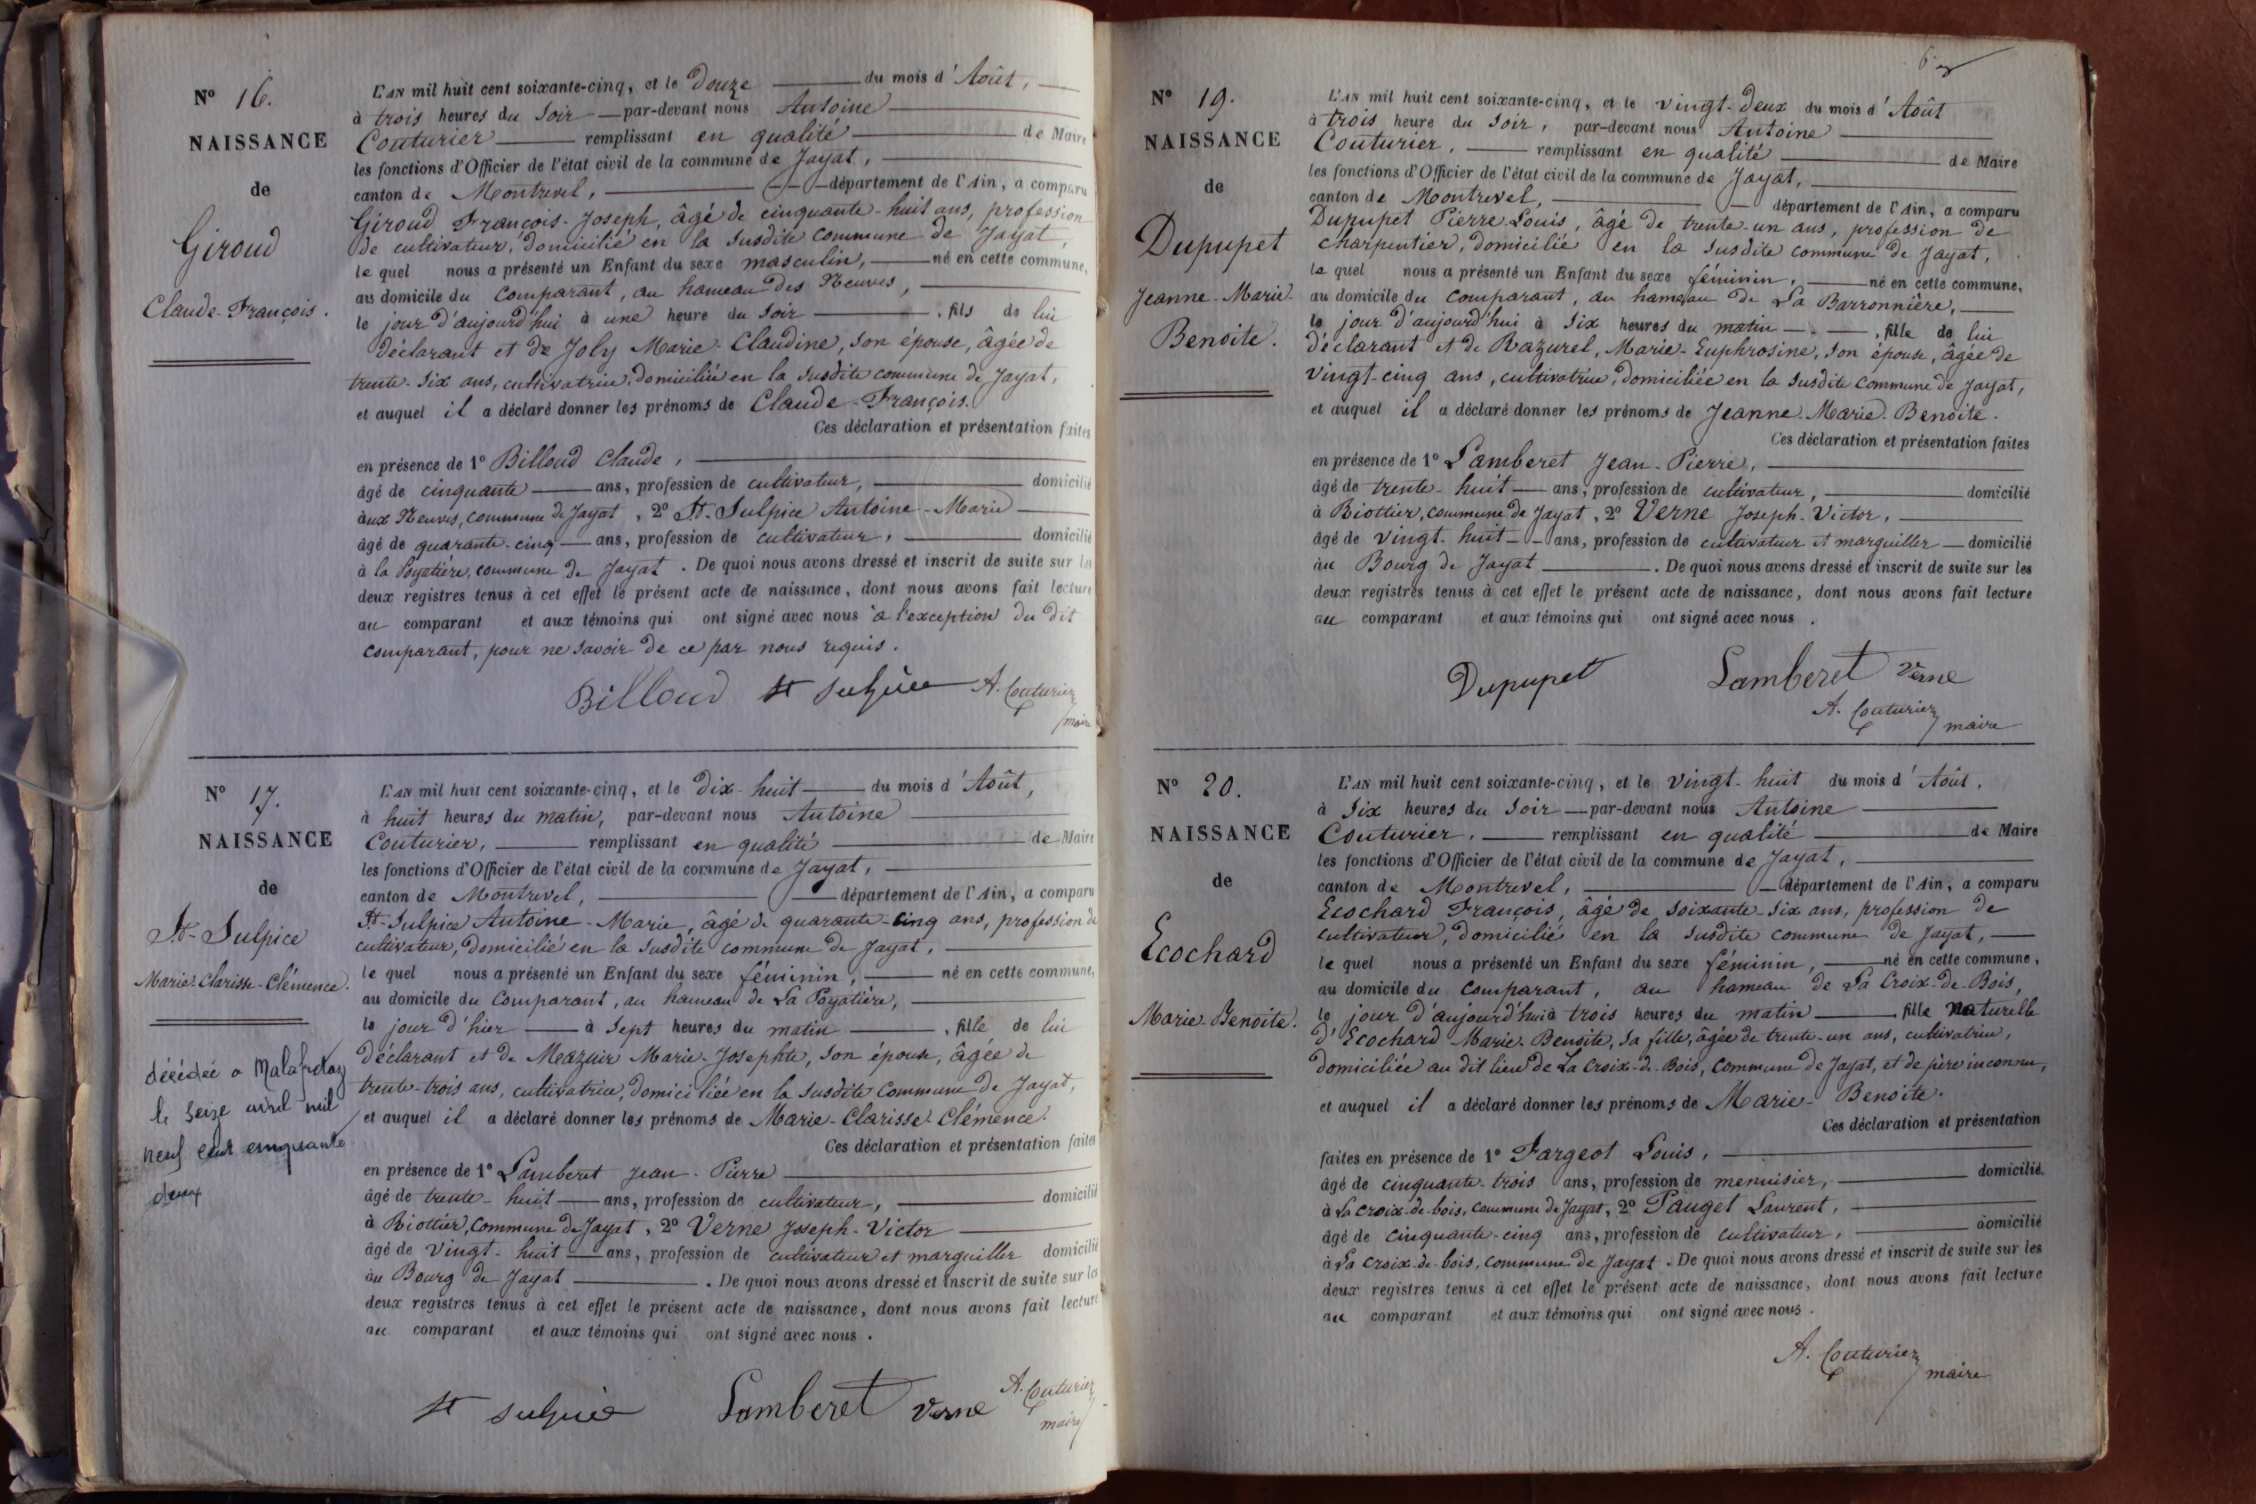 N° 16.
NAISSANCE
de
Giroud
Claude-François.
L'AN mil huit cent soixante-cinq, et le douze du mois d'Août,
à trois heures du soir par-devant nous Antoine
Couturier remplissant en qualité de Maire
les fonctions d'Officier de l'état civil de la commune de Jayat,
canton de Montrevel, département de l'Ain, a comparu
Giroud François-Joseph, âgé de cinquante-huit ans, profession
de cultivateur, domicilié en la susdite commune de Jayat,
le quel nous a présenté un Enfant du sexe masculin, né en cette commune,
au domicile du comparant, au hameau des Neuves,
le jour d'aujourd'hui à une heure du soir, fils de lui
déclarant et de Joly Marie-Claudine, son épouse, âgée de
trente-six ans, cultivatrice, domiciliée en la susdite commune de Jayat,
et auquel il a déclaré donner les prénoms de Claude-François.
Ces déclaration et présentation faites
en présence de 1° Billoud Claude,
âgé de cinquante ans, profession de cultivateur, domicilié
aux Neuves, commune de Jayat, 2° St-Sulpice Antoine-Marie
âgé de quarante-cinq ans, profession de cultivateur, domicilié
à la Poyatière, commune de Jayat. De quoi nous avons dressé et inscrit de suite sur les
deux registres tenus à cet effet le présent acte de naissance, dont nous avons fait lecture
au comparant et aux témoins qui ont signé avec nous à l'exception du dit
comparant, pour ne savoir de ce par nous requis.
Billoud St Sulpice A. Couturier
maire
N° 17.
NAISSANCE
de
St-Sulpice
Marie-Clarisse-Clémence.
décédée a Malafretaz
le seize avril mil
neuf cent cinquante
deux
L'AN mil huit cent soixante-cinq, et le dix-huit du mois d'Août,
à huit heures du matin, par-devant nous Antoine
Couturier, remplissant en qualité de Maire
les fonctions d'Officier de l'état civil de la commune de Jayat,
canton de Montrevel, département de l'Ain, a comparu
St-Sulpice Antoine-Marie, âgé de quarante-cinq ans, profession de
cultivateur, domicilié en la susdite commune de Jayat,
le quel nous a présenté un Enfant du sexe féminin, né en cette commune,
au domicile du Comparant, au hameau de La Poyatière,
le jour d'hier à sept heures du matin, fille de lui
déclarant et de Mazuir Marie-Josephte, son épouse, âgée de
trente-trois ans, cultivatrice, domiciliée en la susdite Commune de Jayat,
et auquel il a déclaré donner les prénoms de Marie-Clarisse-Clémence.
Ces déclaration et présentation faites
en présence de 1° Lamberet Jean-Pierre
âgé de trente-huit ans, profession de cultivateur, domicilié
à Biottier, Commune de Jayat, 2° Verne Joseph-Victor
âgé de vingt-huit ans, profession de cultivateur et marguiller domicilié
au Bourg de Jayat. De quoi nous avons dressé et inscrit de suite sur les
deux registres tenus à cet effet le présent acte de naissance, dont nous avons fait lecture
au comparant et aux témoins qui ont signé avec nous.
St Sulpice Lamberet Verne A. Couturier
maire
6
N° 19.
NAISSANCE
de
Dupupet
Jeanne-Marie-
Benoite.
L'AN mil huit cent soixante-cinq, et le vingt-deux du mois d'Août
à trois heure du soir, par-devant nous Antoine
Couturier, remplissant en qualité de Maire
les fonctions d'Officier de l'état civil de la commune de Jayat,
canton de Montrevel, département de l'Ain, a comparu
Dupupet Pierre-Louis, âgé de trente-un ans, profession de
charpentier, domicilié en la susdite commune de Jayat,
le quel nous a présenté un Enfant du sexe féminin, né en cette commune,
au domicile du comparant, au hameau de La Barronnière,
le jour d'aujourd'hui à six heures du matin, fille de lui
déclarant et de Razurel, Marie-Euphrosine, son épouse, âgée de
vingt-cinq ans, cultivatrice, domiciliée en la susdite commune de Jayat,
et auquel il a déclaré donner les prénoms de Jeanne-Marie-Benoite.
Ces déclaration et présentation faites
en présence de 1° Lamberet Jean-Pierre,
âgé de trente-huit ans, profession de cultivateur, domicilié
à Biottier, commune de Jayat, 2° Verne Joseph-Victor,
âgé de vingt-huit ans, profession de cultivateur et marguiller domicilié
au Bourg de Jayat. De quoi nous avons dressé et inscrit de suite sur les
deux registres tenus à cet effet le présent acte de naissance, dont nous avons fait lecture
au comparant et aux témoins qui ont signé avec nous.
Dupupet Lamberet Verne
A. Couturier
maire
N° 20.
NAISSANCE
de
Ecochard
Marie-Benoite.
L'AN mil huit cent soixante-cinq, et le vingt-huit du mois d'Août,
à six heures du soir par-devant nous Antoine
Couturier, remplissant en qualité de Maire
les fonctions d'Officier de l'état civil de la commune de Jayat,
canton de Montrevel, département de l'Ain, a comparu
Ecochard François, âgé de soixante-six ans, profession de
cultivateur, domicilié en la susdite commune de Jayat,
le quel nous a présenté un Enfant du sexe féminin, né en cette commune,
au domicile du comparant, au hameau de La Croix-de-Bois,
le jour d'aujourd'hui à trois heures du matin, fille naturelle
d'Ecochard Marie-Benoite, sa fille, âgée de trente-un ans, cultivatrice,
domiciliée au dit lieu de La Croix-de-Bois, commune de Jayat, et de père inconnu,
et auquel il a déclaré donner les prénoms de Marie-Benoite.
Ces déclaration et présentation
faites en présence de 1° Fargeot Louis,
âgé de cinquante-trois ans, profession de menuisier, domicilié
à La Croix-de-bois, commune de Jayat, 2° Pauget Laurent,
âgé de cinquante-cinq ans, profession de cultivateur, domicilié
à La Croix-de-bois, commune de Jayat. De quoi nous avons dressé et inscrit de suite sur les
deux registres tenus à cet effet le présent acte de naissance, dont nous avons fait lecture
au comparant et aux témoins qui ont signé avec nous.
A. Couturier
maire